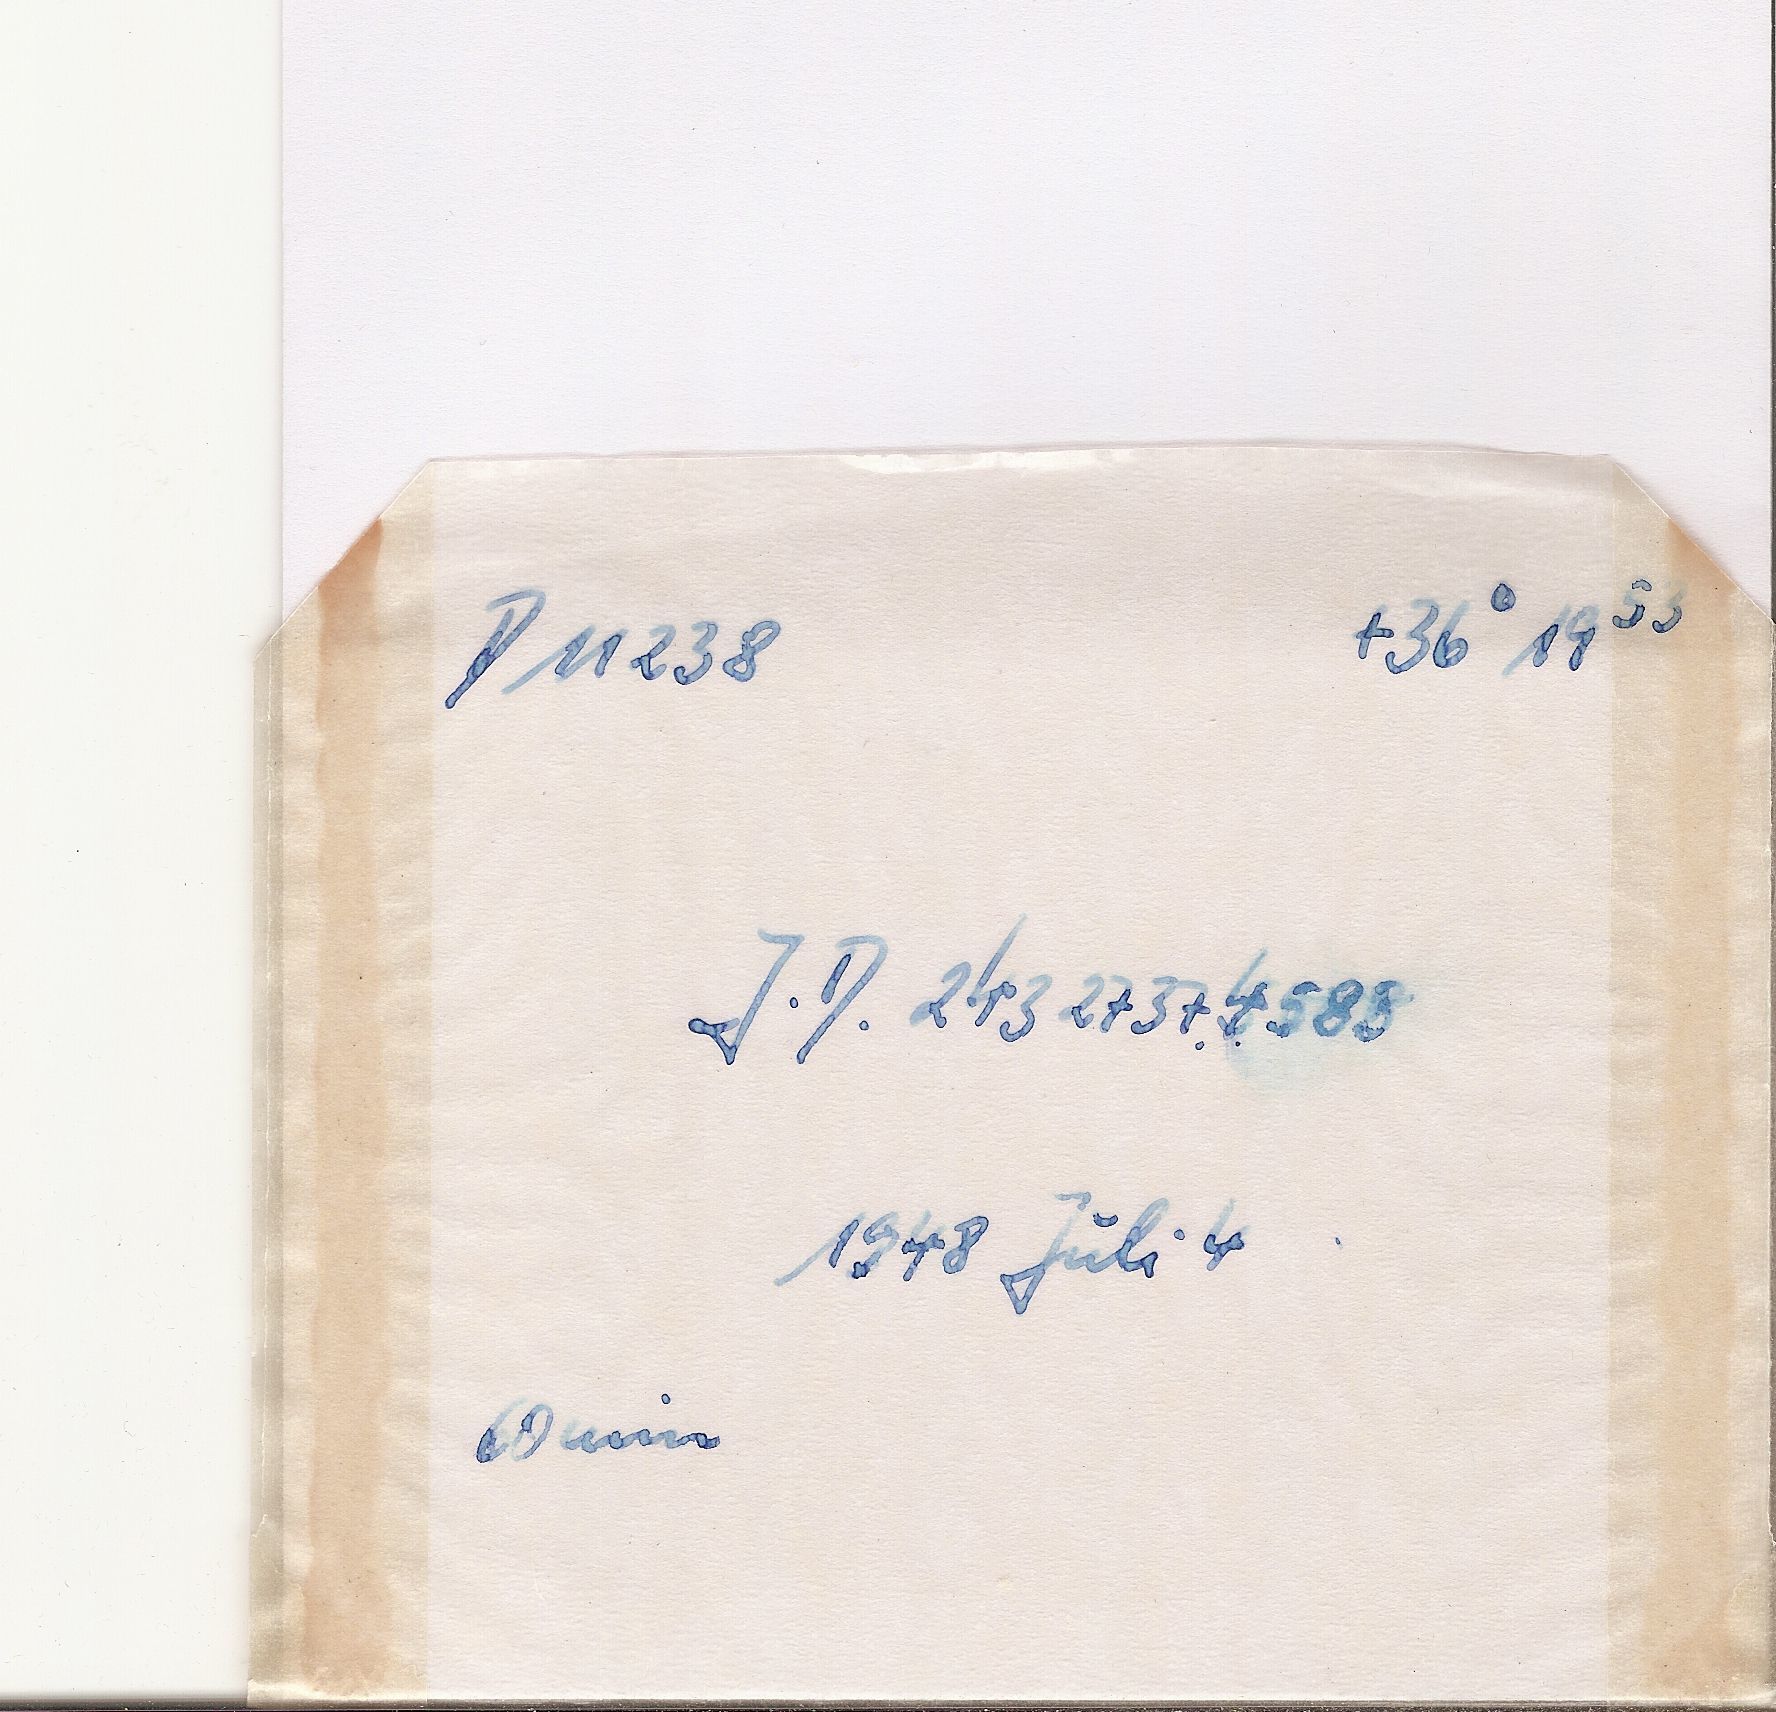 P 11238
+36° 19 53
J.D. 243 2737.4588
1948 Juli 4
60 min